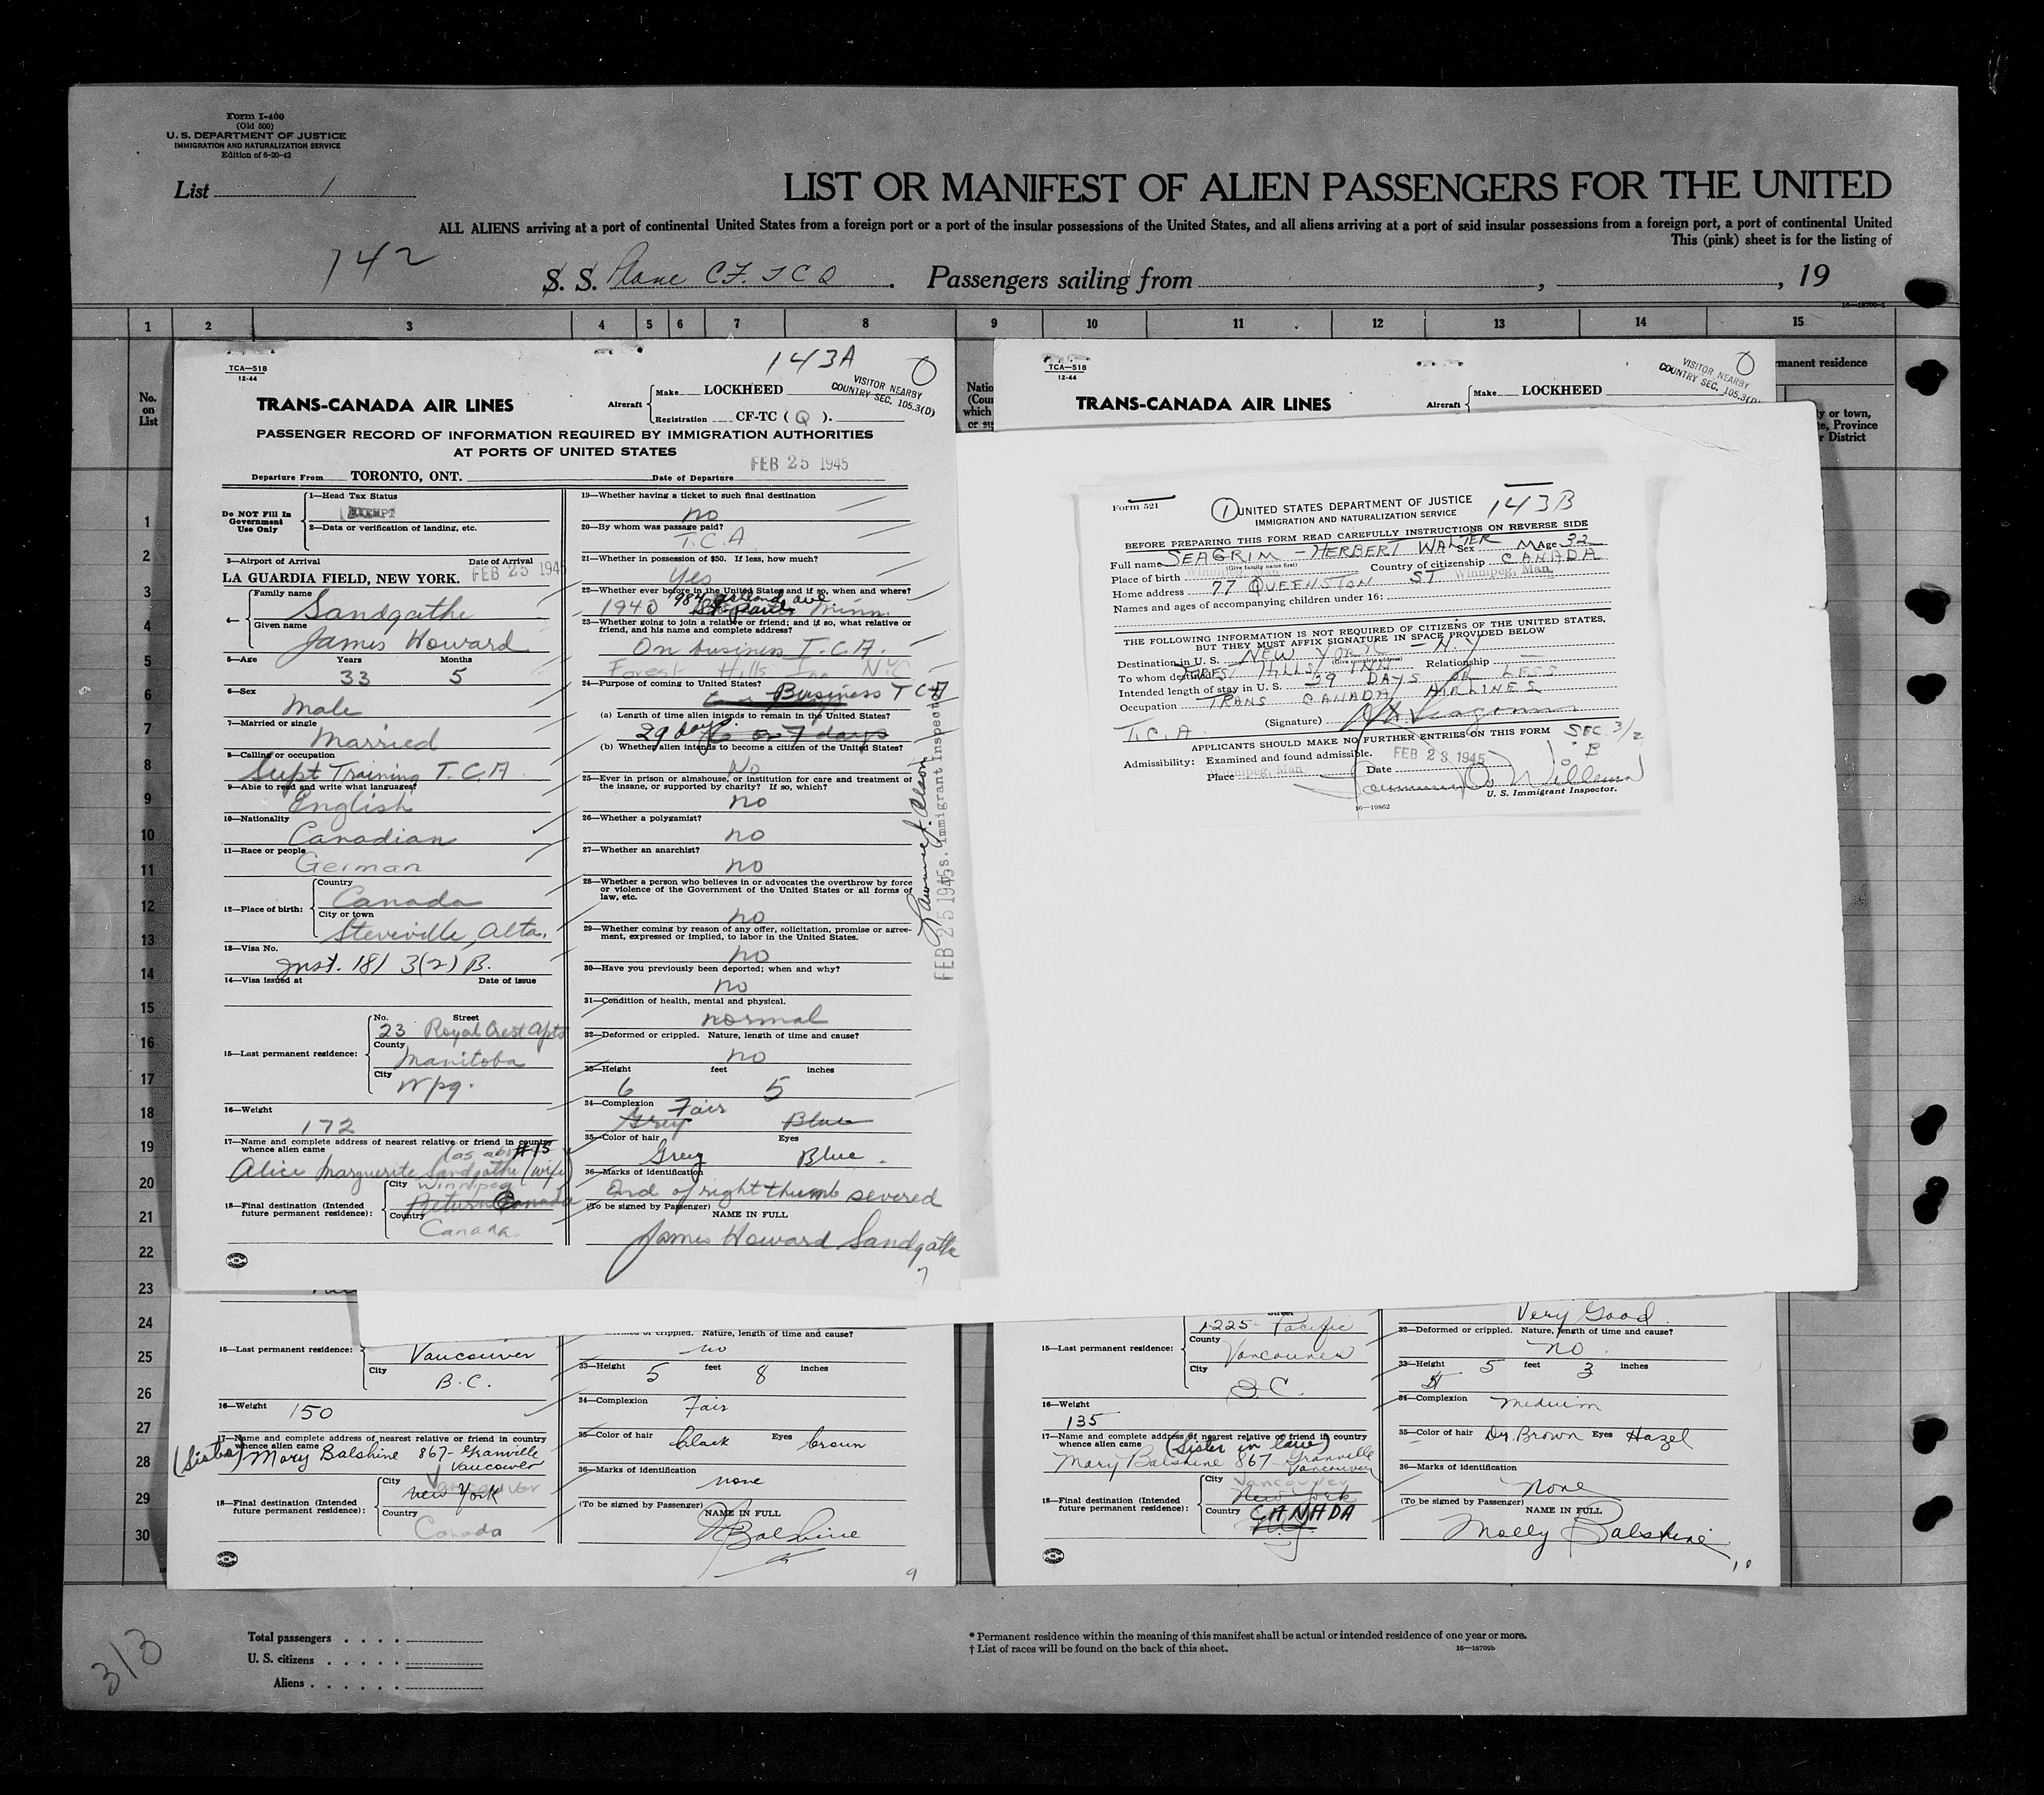 Form I-400
(Old 500)
U. S. DEPARTMENT OF JUSTICE
IMMIGRATION AND NATURALIZATION SERVICE
Edition of 6-20-42
List 1
LIST OR MANIFEST OF ALIEN PASSENGERS FOR THE UNITED
ALL ALIENS arriving at a port of continental United States from a foreign port or a port of the insular possessions of the United States, and all aliens arriving at a port of said insular possessions from a foreign port, a port of continental United
This (pink) sheet is for the listing of
142
S. S. Plane CF. TCQ. Passengers sailing from , , 19
1 2 3 4 5 6 7 8 9 10 11 12 13 14 15
No. on List
1
2
3
4
5
6
7
8
9
10
11
12
13
14
15
16
17
18
19
20
21
22
23
24
25
26
27
28
29
30
143A
TCA—518
12-44
VISITOR NEARBY
COUNTRY SEC. 105.3(D)
TRANS-CANADA AIR LINES
Aircraft Make LOCKHEED
Registration CF-TC ( Q ).
PASSENGER RECORD OF INFORMATION REQUIRED BY IMMIGRATION AUTHORITIES
AT PORTS OF UNITED STATES
Departure From TORONTO, ONT. Date of Departure FEB 25 1945
Do NOT Fill In
Government
Use Only
1—Head Tax Status
EXEMPT
2—Data or verification of landing, etc.
3—Airport of Arrival Date of Arrival
LA GUARDIA FIELD, NEW YORK. FEB 25 194
4— Family name
Sandgathe
Given name
James Howard
5—Age Years Months
33 5
6—Sex
Male
7—Married or single
Married
8—Calling or occupation
Supt Training T.C.A.
9—Able to read and write what languages?
English
10—Nationality
Canadian
11—Race or people
German
12—Place of birth: Country
Canada
City or town
Steveville, Alta.
13—Visa No.
Inst. 181 3(2) B.
14—Visa issued at Date of issue
15—Last permanent residence: No. Street
23 Royal Crest Apts
County
Manitoba
City
Wpg.
16—Weight
172
17—Name and complete address of nearest relative or friend in country
whence alien came
#15
Alice Marguerite Sandgathe (wife)
18—Final destination (Intended
future permanent residence):
City Winnipeg
Return Canada
Country
Canada
19—Whether having a ticket to such final destination
no
20—By whom was passage paid?
T.C.A
21—Whether in possession of $50. If less, how much?
Yes
22—Whether ever before in the United States and if so, when and where?
984 Ashland ave
1943 St. Paul Minn.
23—Whether going to join a relative or friend; and if so, what relative or
friend, and his name and complete address?
On business T.C.A.
Forest Hills Inn NYC
24—Purpose of coming to United States?
Business TCA
(a) Length of time alien intends to remain in the United States?
29 days 7 days
(b) Whether alien intends to become a citizen of the United States?
No
25—Ever in prison or almshouse, or institution for care and treatment of
the insane, or supported by charity? If so, which?
no
26—Whether a polygamist?
no
27—Whether an anarchist?
no
28—Whether a person who believes in or advocates the overthrow by force
or violence of the Government of the United States or all forms of
law, etc.
no
29—Whether coming by reason of any offer, solicitation, promise or agree-
ment, expressed or implied, to labor in the United States.
no
30—Have you previously been deported; when and why?
no
31—Condition of health, mental and physical.
normal
32—Deformed or crippled. Nature, length of time and cause?
no
33—Height feet inches
6 5
34—Complexion Fair
Grey Blue
35—Color of hair Eyes
Grey Blue.
36—Marks of identification
End of right thumb severed
(To be signed by Passenger)
NAME IN FULL
James Howard Sandgathe
7
FEB 25 1945
Immigrant Inspector
TCA—518
12-44
VISITOR NEARBY
COUNTRY SEC. 105.3(D)
TRANS-CANADA AIR LINES
Aircraft Make LOCKHEED
Form 521
1 UNITED STATES DEPARTMENT OF JUSTICE
IMMIGRATION AND NATURALIZATION SERVICE
143B
BEFORE PREPARING THIS FORM READ CAREFULLY INSTRUCTIONS ON REVERSE SIDE
Full name SEAGRIM - HERBERT WALTER Sex M Age 32
(Give family name first)
Place of birth Winnipeg, Man Country of citizenship CANADA
Home address 77 QUEENSTON ST Winnipeg, Man.
Names and ages of accompanying children under 16:
THE FOLLOWING INFORMATION IS NOT REQUIRED OF CITIZENS OF THE UNITED STATES,
BUT THEY MUST AFFIX SIGNATURE IN SPACE PROVIDED BELOW
Destination in U. S. NEW YORK - N.Y
(Give complete address)
To whom destined FOREST HILLS INN Relationship —
Intended length of stay in U. S. 29 DAYS OR LESS
Occupation TRANS CANADA AIRLINES
T.C.A. (Signature) H W Seagrim
APPLICANTS SHOULD MAKE NO FURTHER ENTRIES ON THIS FORM
SEC. 3/2
B
Admissibility: Examined and found admissible.
Place Winnipeg, Man Date FEB 23 1945
U. S. Immigrant Inspector.
16—19862
15—Last permanent residence:
Vancouver
City
B.C.
16—Weight 150
17—Name and complete address of nearest relative or friend in country
whence alien came
(Sister) Mary Balshine 867- Granville
Vancouver
18—Final destination (Intended
future permanent residence):
City
New York
Country
Canada
32—Deformed or crippled. Nature, length of time and cause?
no
33—Height 5 feet 8 inches
34—Complexion Fair
35—Color of hair black Eyes brown
36—Marks of identification
none
(To be signed by Passenger)
NAME IN FULL
Balshine
9
Street
1225- Pacific
15—Last permanent residence: County
Vancouver
City
B.C.
16—Weight
135
17—Name and complete address of nearest relative or friend in country
whence alien came (Sister in law)
Mary Balshine 867 Granville
Vancouver
18—Final destination (Intended
future permanent residence):
City Vancouver
New York
Country CANADA
Very Good
32—Deformed or crippled. Nature, length of time and cause?
no.
33—Height 5 feet 3 inches
34—Complexion medium
35—Color of hair Dr. Brown Eyes Hazel
36—Marks of identification
None
(To be signed by Passenger)
NAME IN FULL
Molly Balshine
10
313
Total passengers
U. S. citizens
Aliens
* Permanent residence within the meaning of this manifest shall be actual or intended residence of one year or more.
† List of races will be found on the back of this sheet.
16—18709b